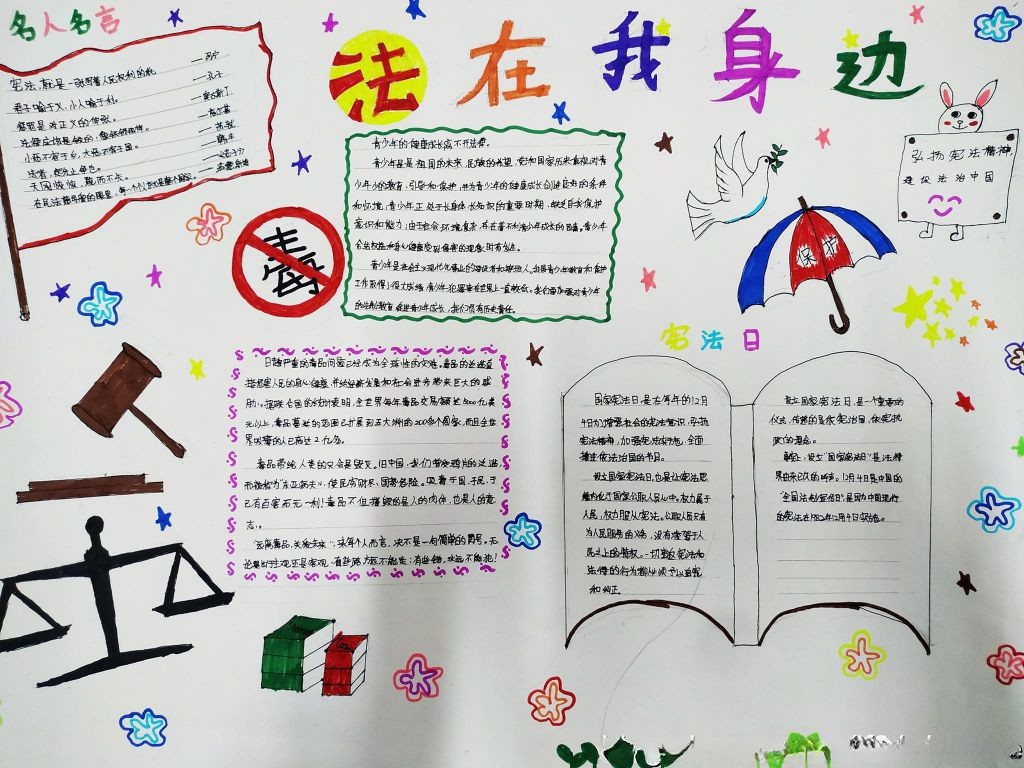 名人名言
法在我身边
宪法,就是一张写着人民权利的纸 ——列宁
君子喻于义,小人喻于利。 ——孔子
法者,天下之
天网恢恢,疏而不失。
毒
青少年的健康成长离不开法律。
青少年是是祖国的未来,民族的希望,党和国家历来重视对青
少年的教育、引导和保护,并为青少年的健康成长创造良好的条件
和环境,青少年正处于长身体长知识的重要时期,缺乏自我保护
意识和能力,由于社会环境复杂,存在着不利青少年成长的因素,青少年
合法权益和身心健康受到侵害的现象时有发生。
青少年是社会主义现代化事业的建设者和接班人,我国青少年教育和保护
工作取得了很大成绩,青少年犯罪率在世界上一直较低,我们要加强对青少年
的法制教育,促进青少年成长,我们负有历史责任。
弘扬宪法精神,
建设法治中国
保护
宪法日
日趋严重的毒品问题已经成为全球性的灾难,毒品的泛滥直
接危害人民的身心健康,并给经济发展和社会进步带来巨大的威
胁。据联合国的统计表明,全世界每年毒品交易额达5000亿美
元以上,毒品蔓延的范围已扩展到五大洲的200多个国家,而且全世
界吸毒的人已高达2亿多。
毒品带给人类的只会是毁灭。旧中国,我们曾受鸦片的泛滥,
而被称为“东亚病夫”,使民穷财尽,国势危险。吸毒于国、于民、于
己有百害而无一利!毒品不但摧毁的是人的肉体,也是人的意
志。
“远离毒品,关爱未来”,来每个人而言,决不是一句简单的口号。无
论是出于主观还是客观,有些路万万不能走;有些错,永远不能犯!
国家宪法日是在每年的12月
4日为了增强社会的宪法意识,弘扬
宪法精神,加强宪法实施,全面
推进依法治国的节日。
设立国家宪法日,也是让宪法思
维内化于国家公职人员心中。权力属于
人民,权力服从宪法。公职人员只有
为人民服务的义务,没有凌驾于人
民之上的特权。一切违反宪法和
法律的行为都必须予以追究
和纠正。
设立国家宪法日,是一个重要的
仪式,传递的是依宪治国、依宪执
政的理念。
事实上,设立“国家宪法日”是法律
界由来已久的呼声。12月4日是中国的
“全国法制宣传日”,是因为中国现行
的宪法在1982年12月4日实施。